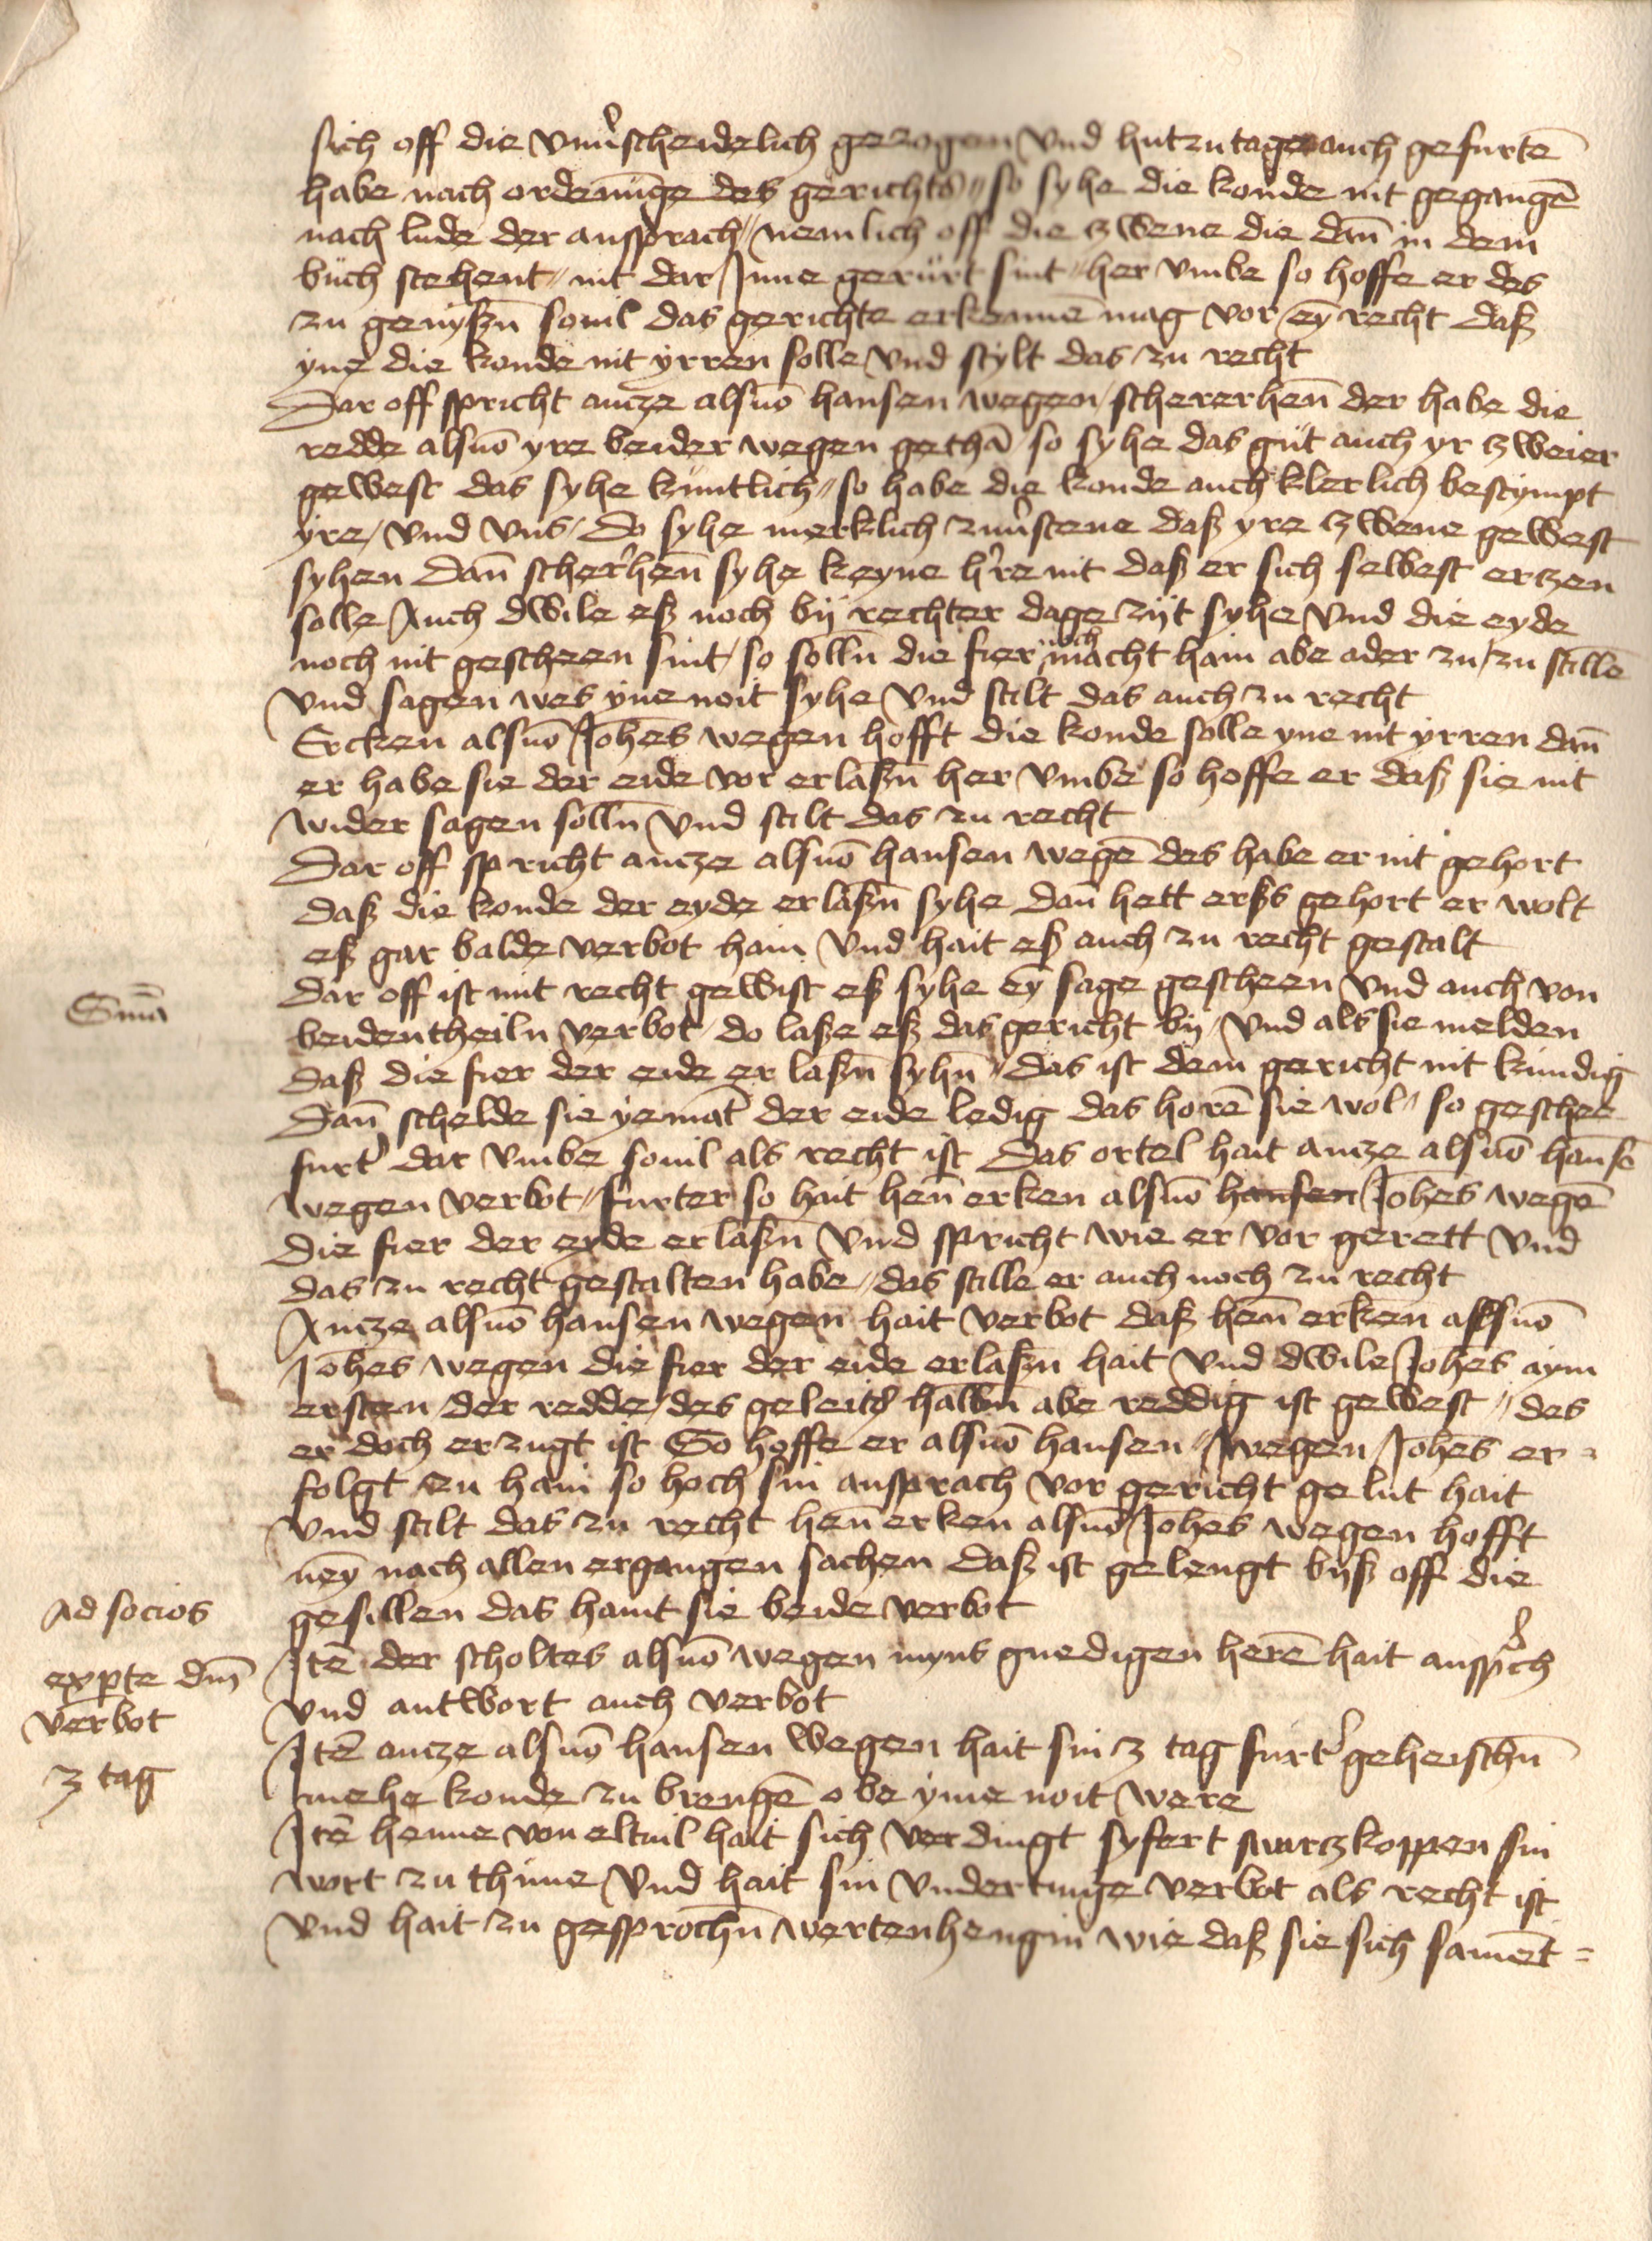 sich off die vnu͛scheidelich gezogen vnd hutzutage auch gefurtē
habe nach ordenūge des gerichts // so syhe die konde nit gegangē
nach lude der ansprach // nemlich off die zwene die dan̄ in dem
buch stehent // nit dar Inne gerurt sint // her vmbe so hoffe er des
zu genyßn̄ souil das gerichte erkennē mag vor eȳ recht daß
yne die konde nit yrren solle vnd stylt das zu recht
Dar off spricht ancze alsuō hansen wegen / schererhen̄ der habe die
redde alsuō yre beider wegen gethā so syhe das gut auch yr zweier
gewest das syhe kuntlich // so habe die konde auch klerlich bestympt
yre / vnd vns / do syhe merklich zuu͛stene daß yre zwene gewest
syhen dan̄ scher͛hen̄ syhe keyne h͛re nit daß er sich selbest ertzen
solle Auch dwile eß noch by rechter dage zijt syhe vnd die eyde
noch nit gescheen sint / so solln̄ die fier noch macht hain abe ader zu / zu stillē
vnd sagen wes yne noit syhe vnd stilt das auch zu recht
Ercken alsuō Joh̄es wegen hofft die konde solle yne nit yrren dan̄
er habe sie der eide vor erlaßn̄ her vmbe so hoffe er daß sie nit
wider sagen solln̄ vnd stilt das zu recht
Dar off spricht ancze alsuō hansen wegē des habe er nit gehort
daß die konde der eyde erlaßn̄ syhe dan̄ hett erßs gehort er wolt
eß gar balde verbot hain vnd hait eß auch zu recht gestalt
Sm̄a
Dar off ist mit recht gewist eß syhe eȳ sage gescheen vnd auch von
beidentheiln verbot / do laße eß das gericht by / vnd als sie melden
daß die fier der eide er laßn̄ syhn̄ // das ist dem gericht nit kundig
dan̄ schelde sie yemāt der eide ledig das horē sie wol // so geschee
furt͛ dar vmbe souil als recht ist Das ortel hait ancze alsuō hansē
wegen verbot // furter so hait hen̄ erken alsuō hansen Joh̄es wegē
die fier der eyde erlaßn̄ vnd spricht wie er vor gerett vnd
das zu recht gestalten habe // das stille er auch noch zu recht
Ancze alsuō hansen wegen hait verbot daß hen̄ erken alsuō
Joh̄es wegen die fier der eide erlaßn̄ hait vnd dwile Joh̄es aym
ersten der redde / des geleits halbn̄ abe reddig ist gewest // des
er doch erzugt ist So hoffe er alsuō hansen // wegen Joh̄es er =
folgt zu hain so hoch sin ansprach vor gericht gelut hait
vnd stilt das zu recht hen̄ erken alsuō Joh̄es wegen hofft
neȳ nach allen ergangen sachen daß ist gelengt byß off die
Ad socios
gesillen das haint sie beide verbot
exp̱te dm̄
verbot
Itē der scholtes alsuō wegen myns gnedigen herē hait ansp͛ch
vnd antwort auch verbot
3 tag
Itē ancze alsuō hansen wegen hait sin 3 tag furt͛ geheischn̄
mehe konde zu brengē obe yme noit were
Itē henne von eltuil hait sich verdingt syfert swartzkoppen sin
wort zu thune vnd hait sin vndertinge verbot als recht ist
vnd hait zu gesprochn̄ wertenhengin wie daß sie sich samēt =